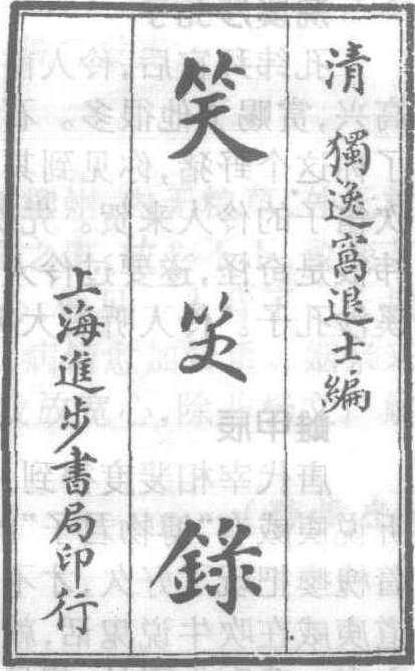 清 獨逸窩退士編
笑笑錄
上海進步書局印行